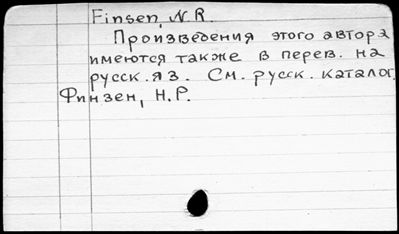 Finsen, N.R.
Произведения этого автора
имеются также в перев. на
русск. яз. См. русск. каталог.
Финзен, Н.Р.